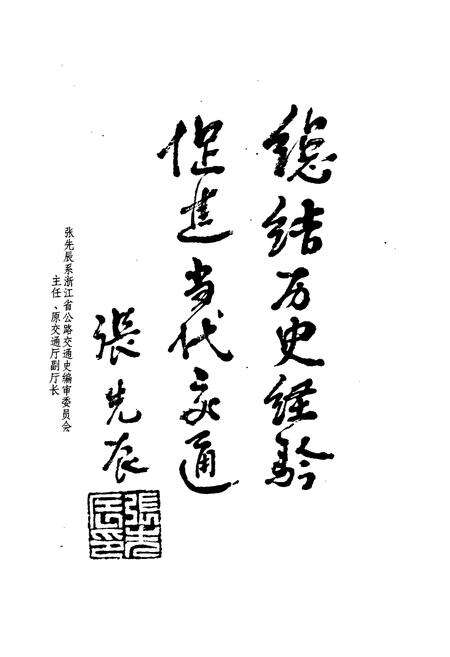 總结历史经验
促進当代交通
張先辰
張先辰印
张先辰系浙江省公路交通史编审委员会
主任、原交通厅副厅长